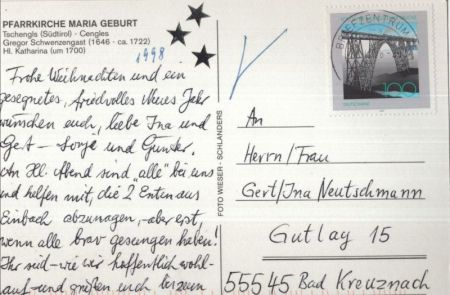 PFARRKIRCHE MARIA GEBURT
Tschengls (Südtirol) - Cengles
Gregor Schwenzengast (1646 - ca. 1722)
Hl. Katharina (um 1700)
1998
Frohe Weihnachten und ein
gesegnetes, friedvolles Neues Jahr
wünschen euch, liebe Ina und
Gert - Sonje und Gunter.
Am Hl. Abend sind "alle" bei uns
und helfen mit, die 2 Enten aus
Einbach abzunagen, - aber erst,
wenn alle brav gesungen haben!
Ihr seid - wie wir hoffentlich wohl-
auf - und grüßen euch herzen
FOTO WIESER - SCHLANDERS
BRIEFZENTRUM
DEUTSCHLAND
100
An
Herrn/Frau
Gert/Ina Neutschmann
Gutlay 15
55545 Bad Kreuznach